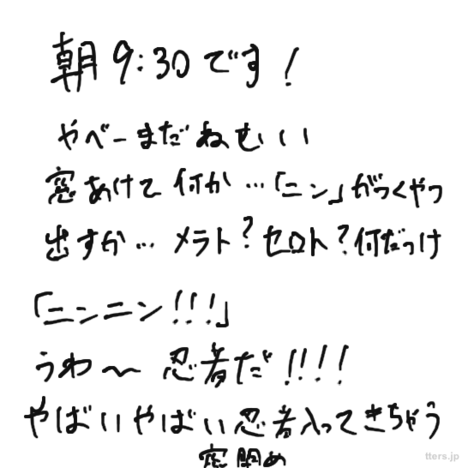 朝9:30です!
やべーまだねむいい
窓あけて何か…「ニン」がつくやつ
出すか…メラト?セロト?何だっけ
「ニンニン!!!」
うわ〜忍者だ!!!!
やばいやばい忍者入ってきちゃう
窓閉め
tters.jp